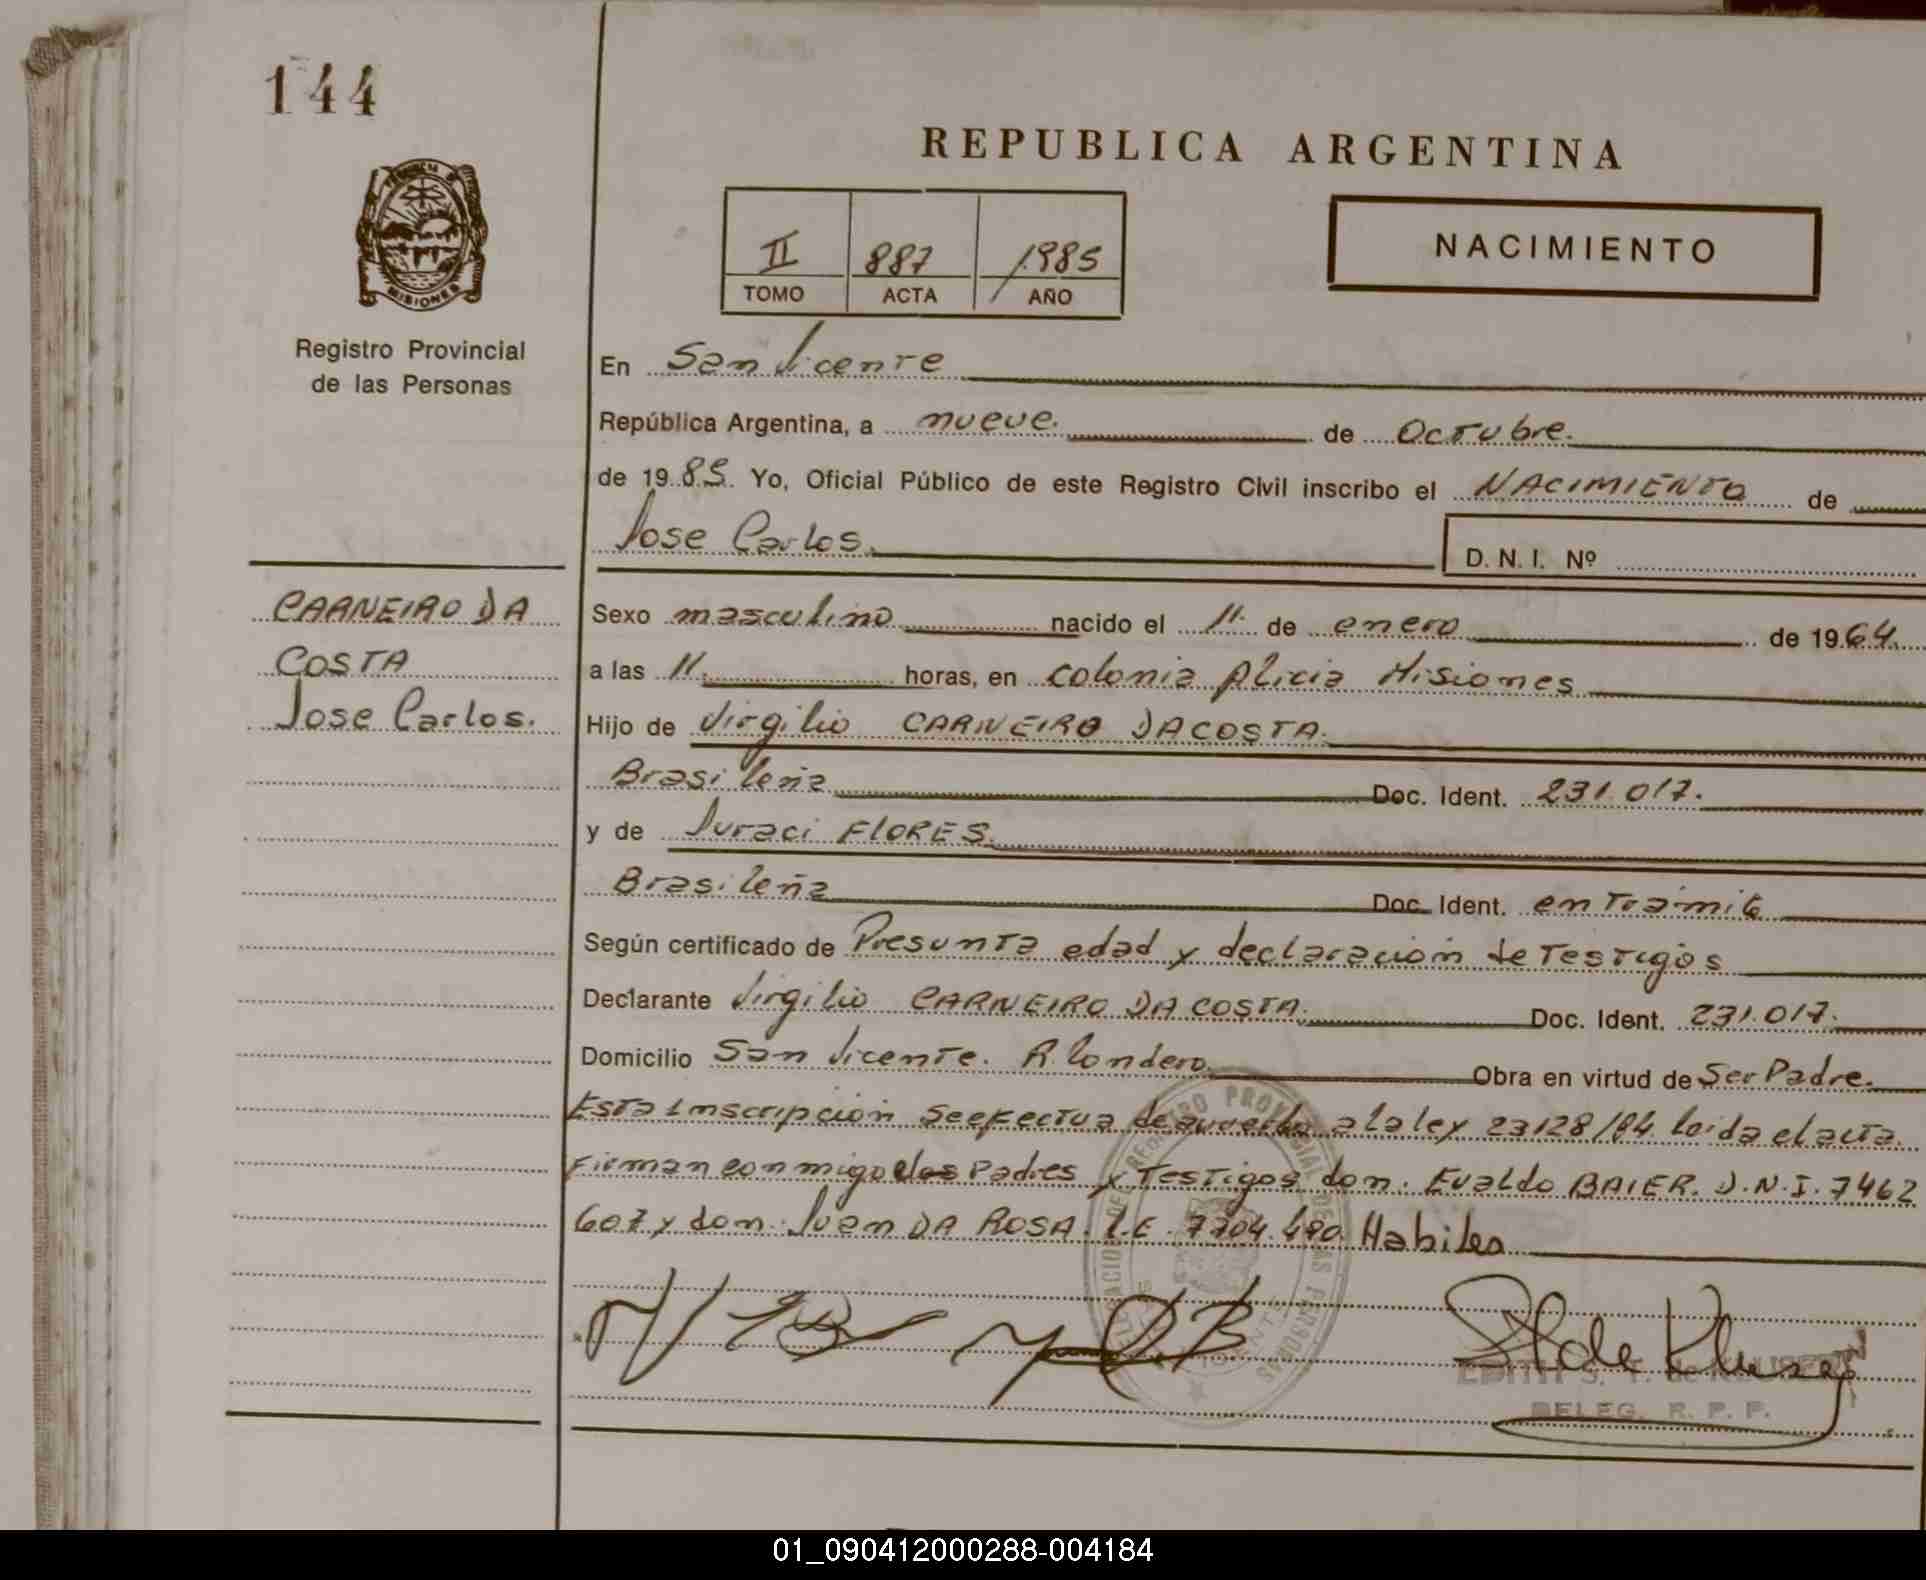 144
REPUBLICA ARGENTINA
II 887 1985
TOMO ACTA AÑO
NACIMIENTO
MISIONES
Registro Provincial
de las Personas
En San Vicente
República Argentina, a nueve. de Octubre.
de 1985. Yo, Oficial Público de este Registro Civil inscribo el NACIMIENTO de
Jose Carlos.
D. N. I. Nº
CARNEIRO DA
COSTA
Jose Carlos.
Sexo masculino nacido el 11. de enero de 1964.
a las 11. horas, en colonia Alicia Misiones
Hijo de Virgilio CARNEIRO DA COSTA.
Brasileña Doc. Ident. 231.017.
y de Juraci FLORES.
Brasileña Doc. Ident. en Trámite
Según certificado de Presunta edad y declaración de Testigos
Declarante Virgilio CARNEIRO DA COSTA. Doc. Ident. 231.017.
Domicilio San Vicente. R. Londero Obra en virtud de Ser Padre.
Esta inscripción se efectua de acuerdo a la ley 23128/84 leida el acta
Firman conmigo los Padres y Testigos don. Evaldo BAIER. D.N.I. 7462
607 y don. Juan DA ROSA. L.E. 7704.490 Habiles
DELEG. R. P. P.
01_090412000288-004184